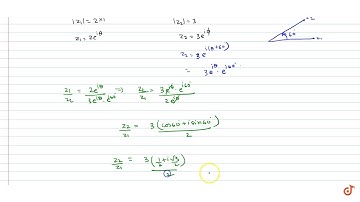 |z₁| = 2×1 |z₂| = 3
z₁ = 2e^iθ z₂ = 3e^iϕ
z₂ = 3e^i(θ+60)
= 3e^iθ · e^i60°
z₂
60°
z₁
z₁/z₂ = 2e^iθ / 3e^iθ e^i60° ⇒ z₂/z₁ = 3e^iθ · e^i60° / 2e^iθ
z₂/z₁ = 3(cos60° + i sin60°) / 2
z₂/z₁ = 3(1/2 + i√3/2) / 2
doubtnut